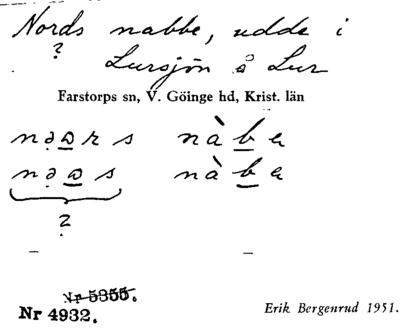 Nords nabbe, udde i
?
Lursjön å Lur
Farstorps sn, V. Göinge hd, Krist. län
nə̣ɷrs nàba
nə̣ɷs nàba
?
Nr 5355.
Nr 4932.
Erik Bergenrud 1951.